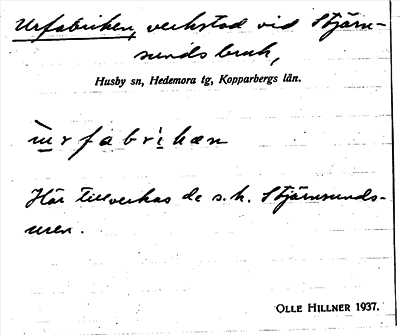 Urfabriken, verkstad vid Stjärn-
sunds bruk,
Husby sn, Hedemora tg, Kopparbergs län.
ùrfabrikæn
Här tillverkas de s.k. Stjärnsunds-
uren.
OLLE HILLNER 1937.